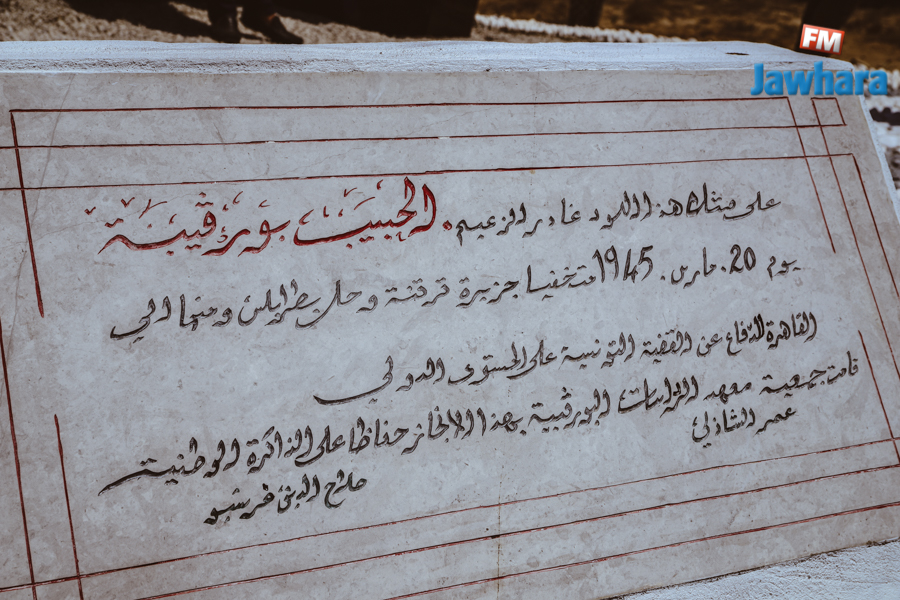 FM
Jawhara
على متن هذا اللود غادر الزعيم. الحبيب بورقيبة
يوم 20. مارس. 1945 متخفيا جزيرة قرقنة وحل بطرابلس ومنها الى
القاهرة للدفاع عن القضية التونسية على المستوى الدولي
قامت جمعية معهد الدراسات البورقيبية بهذا الانجاز حفاظا على الذاكرة الوطنية
عمر الشاذلي
صلاح الدين فرشيو